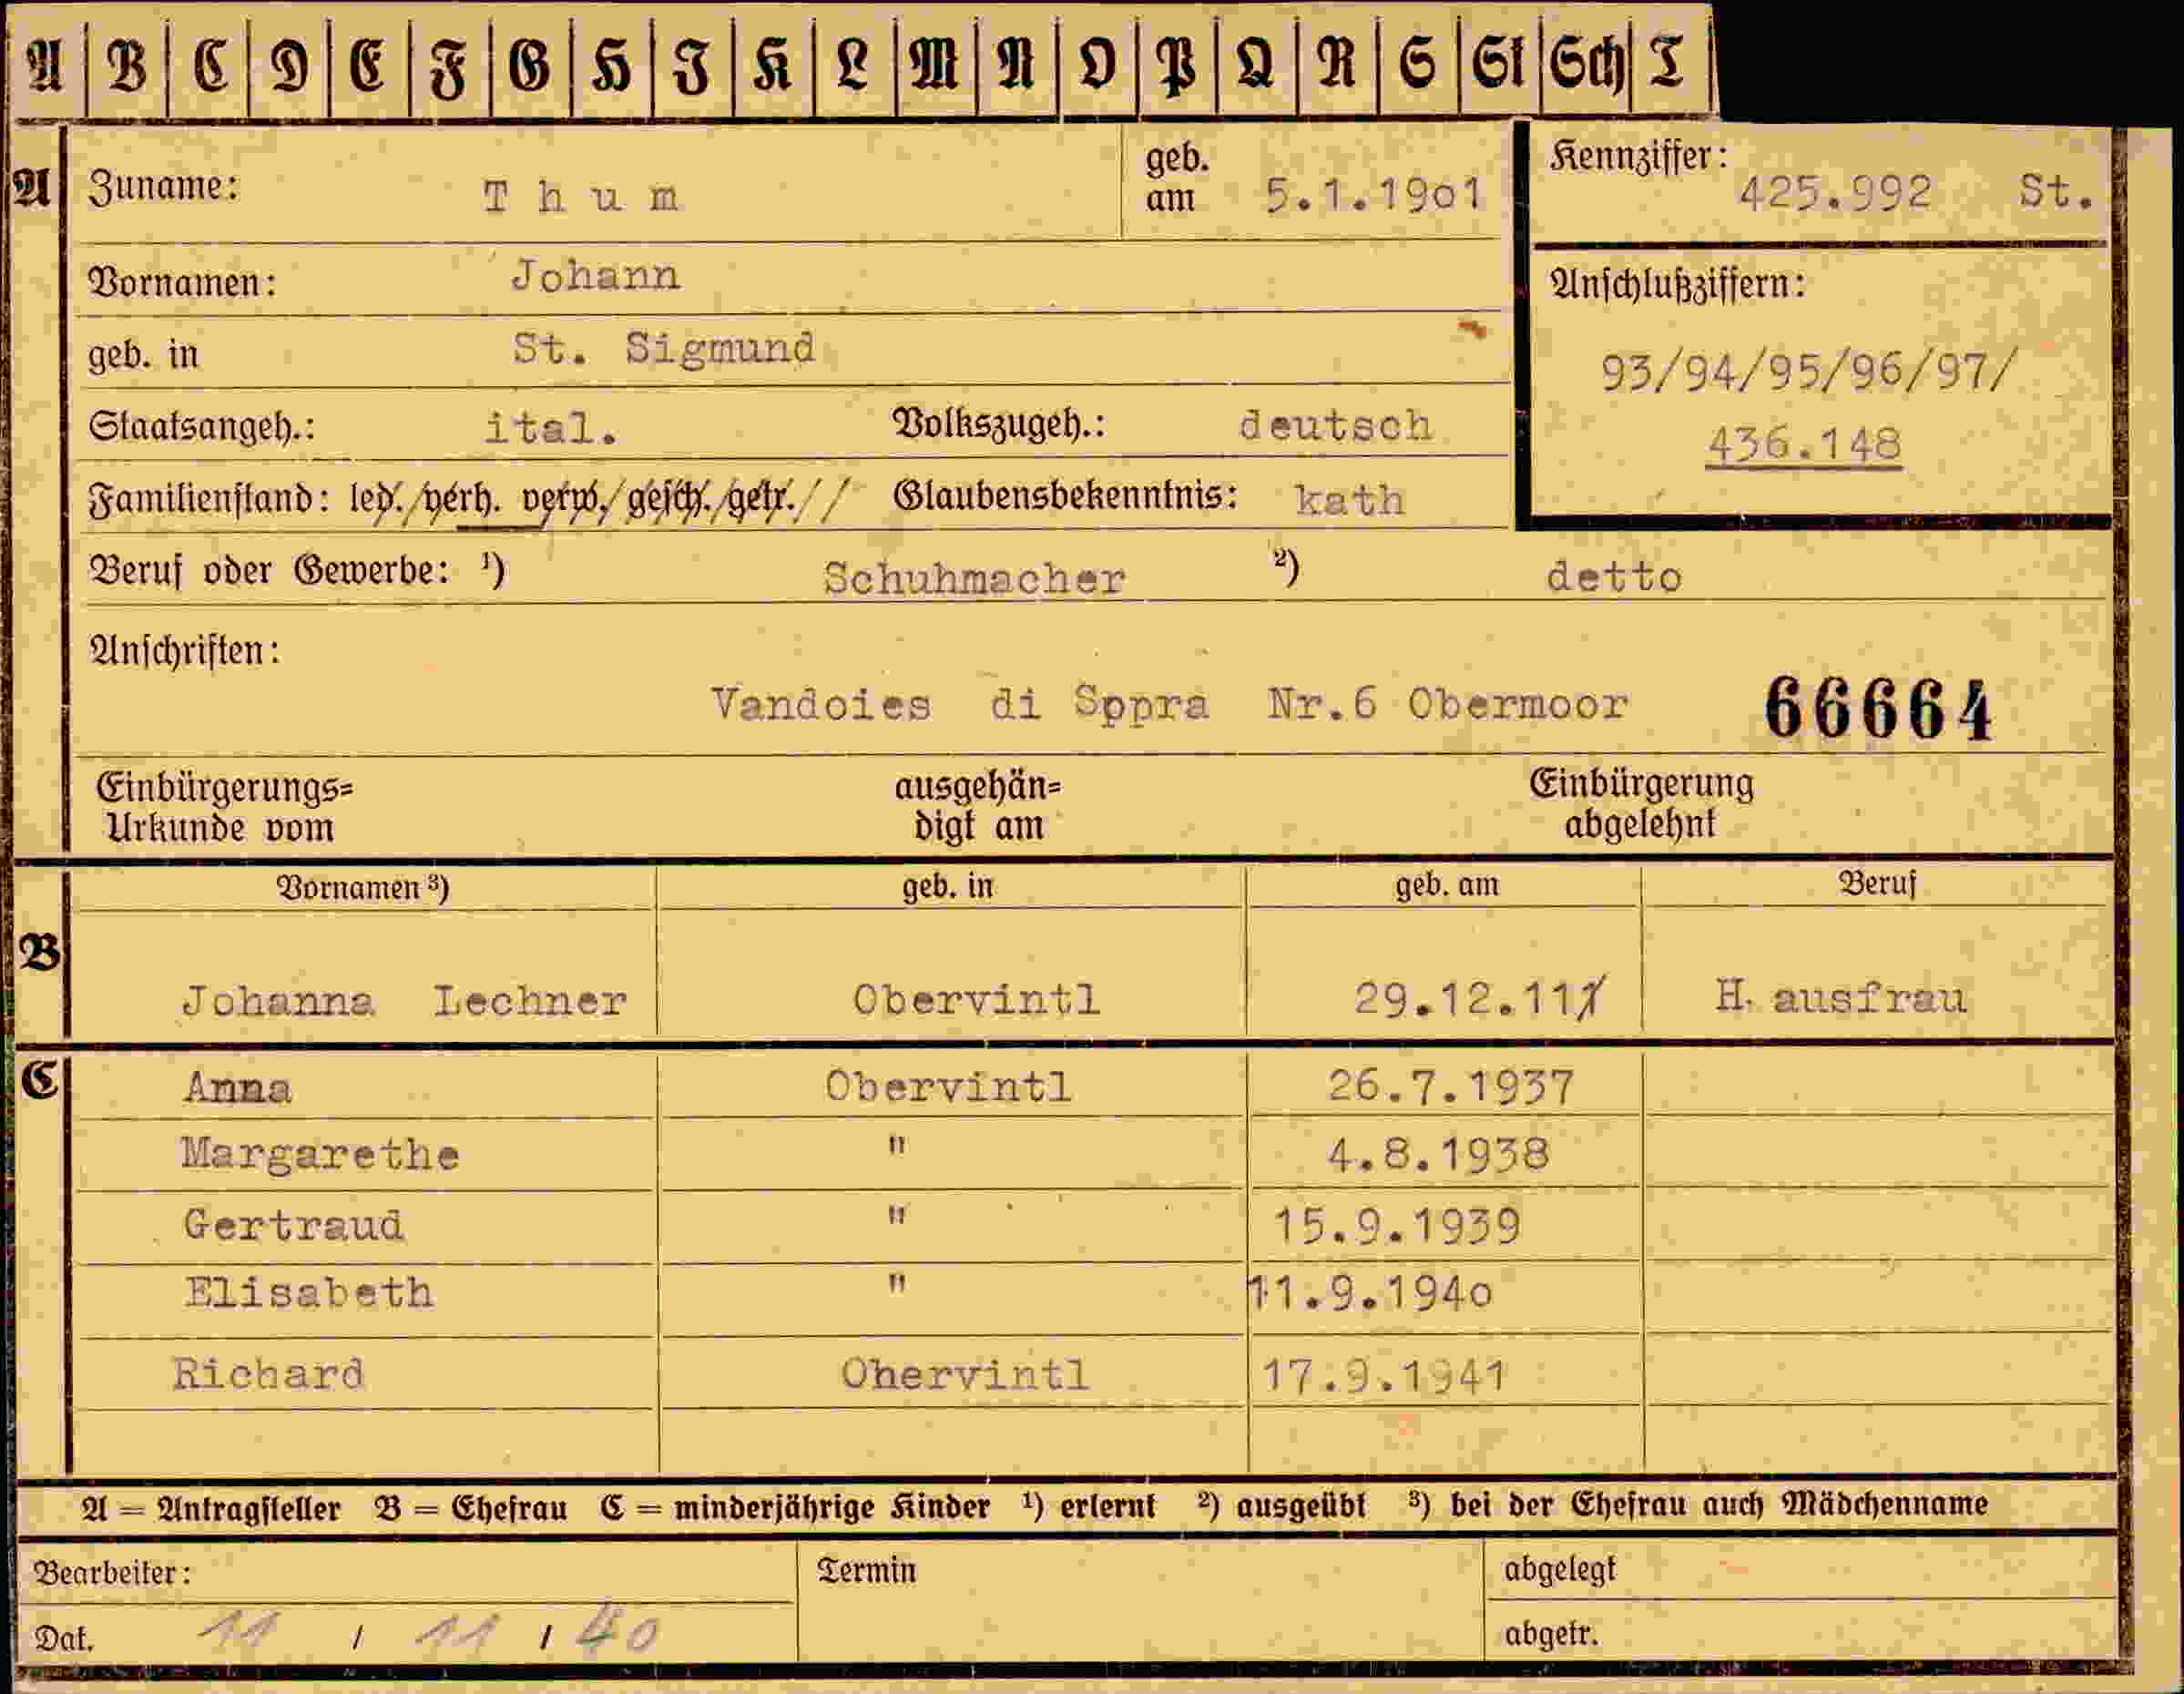 A B C D E F G H I K L M N O P Q R S St Sch T
A Zuname: Thum geb. am 5.1.1901 Kennziffer: 425.992 St.
Vornamen: Johann Anschlußziffern:
geb. in St. Sigmund 93/94/95/96/97/
Staatsangeh.: ital. Volkszugeh.: deutsch 436.148
Familienstand: led./verh. verw./gesch./getr.// Glaubensbekenntnis: kath
Beruf oder Gewerbe: ¹) Schuhmacher ²) detto
Anschriften:
Vandoies di Sppra Nr.6 Obermoor 66664
Einbürgerungs= ausgehän= Einbürgerung
Urkunde vom digt am abgelehnt
Vornamen ³) geb. in geb. am Beruf
B
Johanna Lechner Obervintl 29.12.111 H. ausfrau
C Anna Obervintl 26.7.1937
Margarethe " 4.8.1938
Gertraud " 15.9.1939
Elisabeth " 11.9.1940
Richard Ohervintl 17.9.1941
A = Antragsteller B = Ehefrau C = minderjährige Kinder ¹) erlernt ²) ausgeübt ³) bei der Ehefrau auch Mädchenname
Bearbeiter: Termin abgelegt
Dat. 11 / 11 / 40 abgetr.